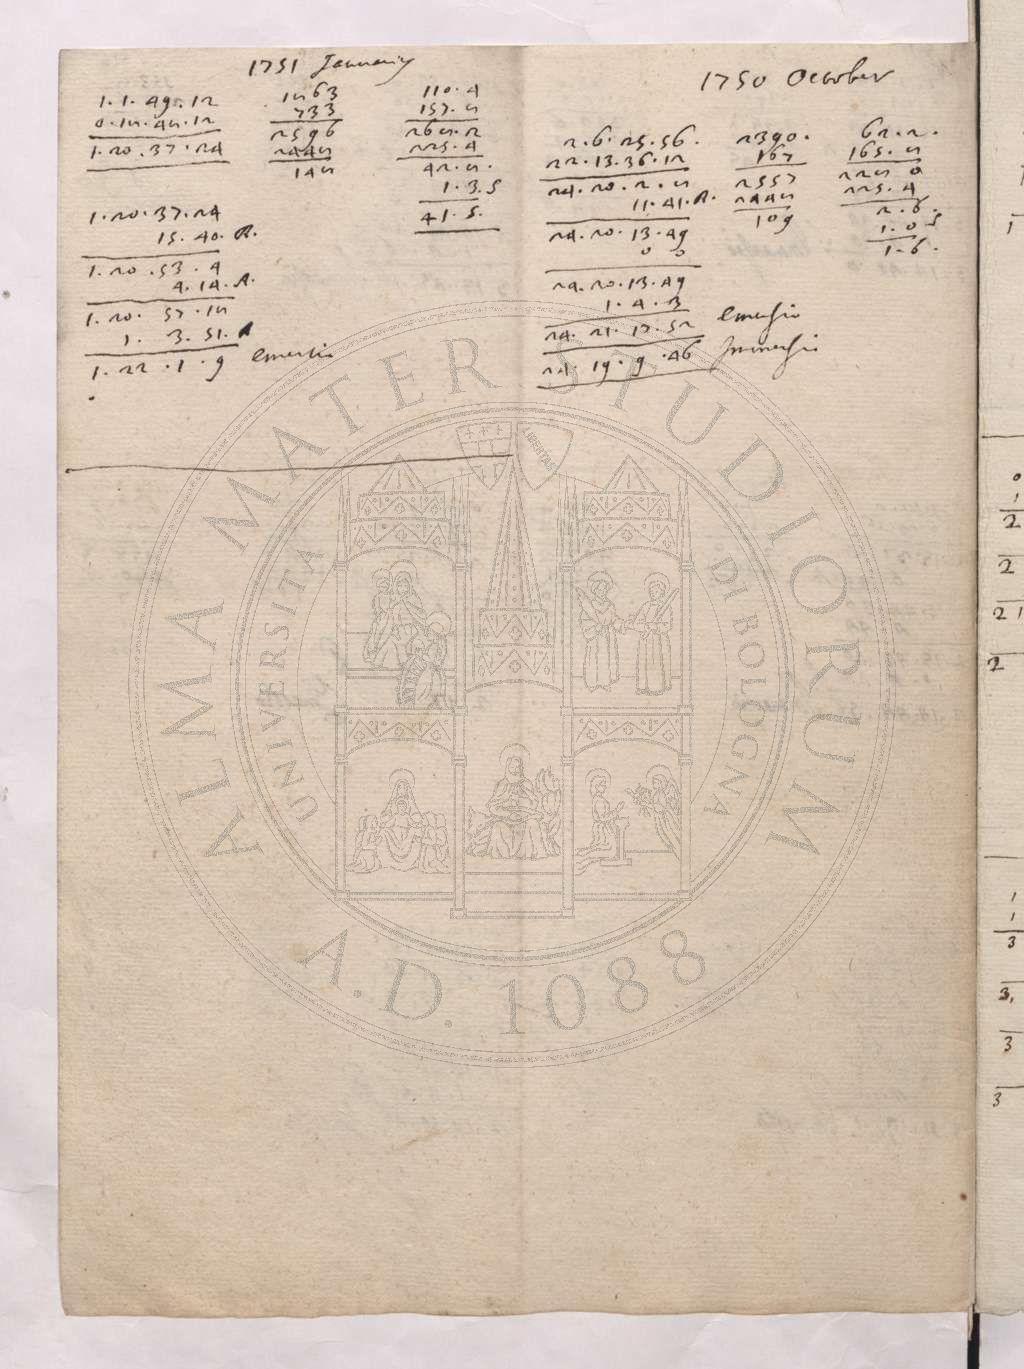 1751 January
1.1.49.12 1863 110.4
0.18.48.12 733 157.8
1.20.37.24 2596 268.2
2448 225.4
148 42.8.
1.3.S
1.20.37.24 41.5.
15.40.A.
1.20.53.4
4.14.A.
1.20.57.18
1.3.51.A
1.22.1.9 emersio
1750 October
2.6.25.56. 2390. 62.2.
22.13.36.12 167 165.8
24.20.2.8 2557 228 0
11.41.A. 2448 225.4
24.20.13.49 109 2.6.
0 0 1.0 S
24.20.13.49 1.6.
1.4.3
24.21.17.52 emersio
24.19.9.46 Immersio
ALMA MATER STUDIORUM
UNIVERSITÀ DI BOLOGNA
LIBERTAS
A.D. 1088
1
0
1
2
2
2 1
2
1
1
3
3,
3
3